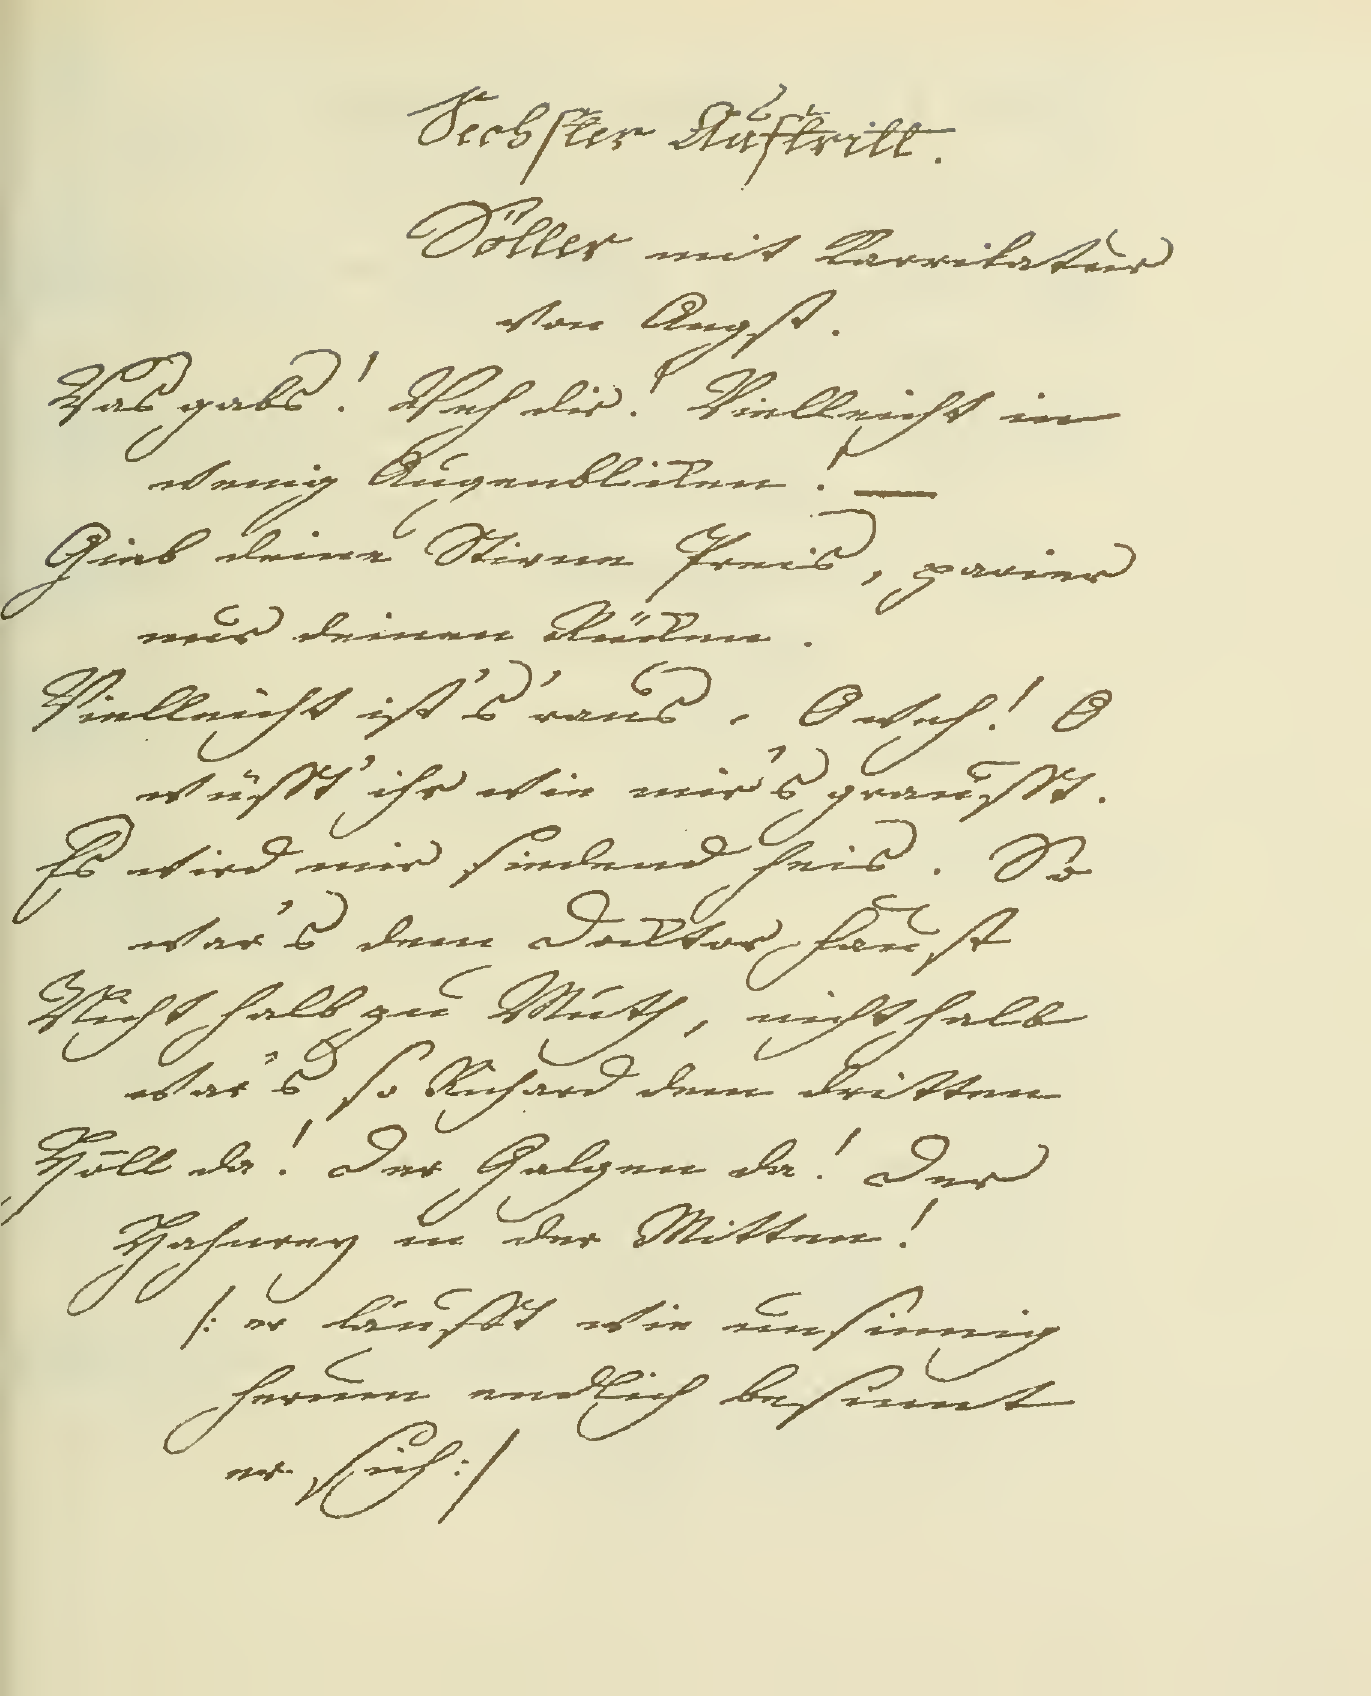 Sechster Auftritt.
Söller mit Karrikatur
von Angst.
Was gabs! Weh dir! Vielleicht in
wenig Augenblicken! —
Gieb deine Stirne Preis, parier
nur deinen Rücken.
Vielleicht ist's 'raus. O weh! O
wüsst' ihr wie mir's grausst.
Es wird mir siedend heis. So
war's dem Docktor Faust
Nicht halb zu Muth, nicht halb
war's so Richard dem dritten
Höll da! Der Galgen da! Der
Hahnrey in der Mitten!
/: er läufft wie unsinnig
herum endlich besinnt
er sich :/